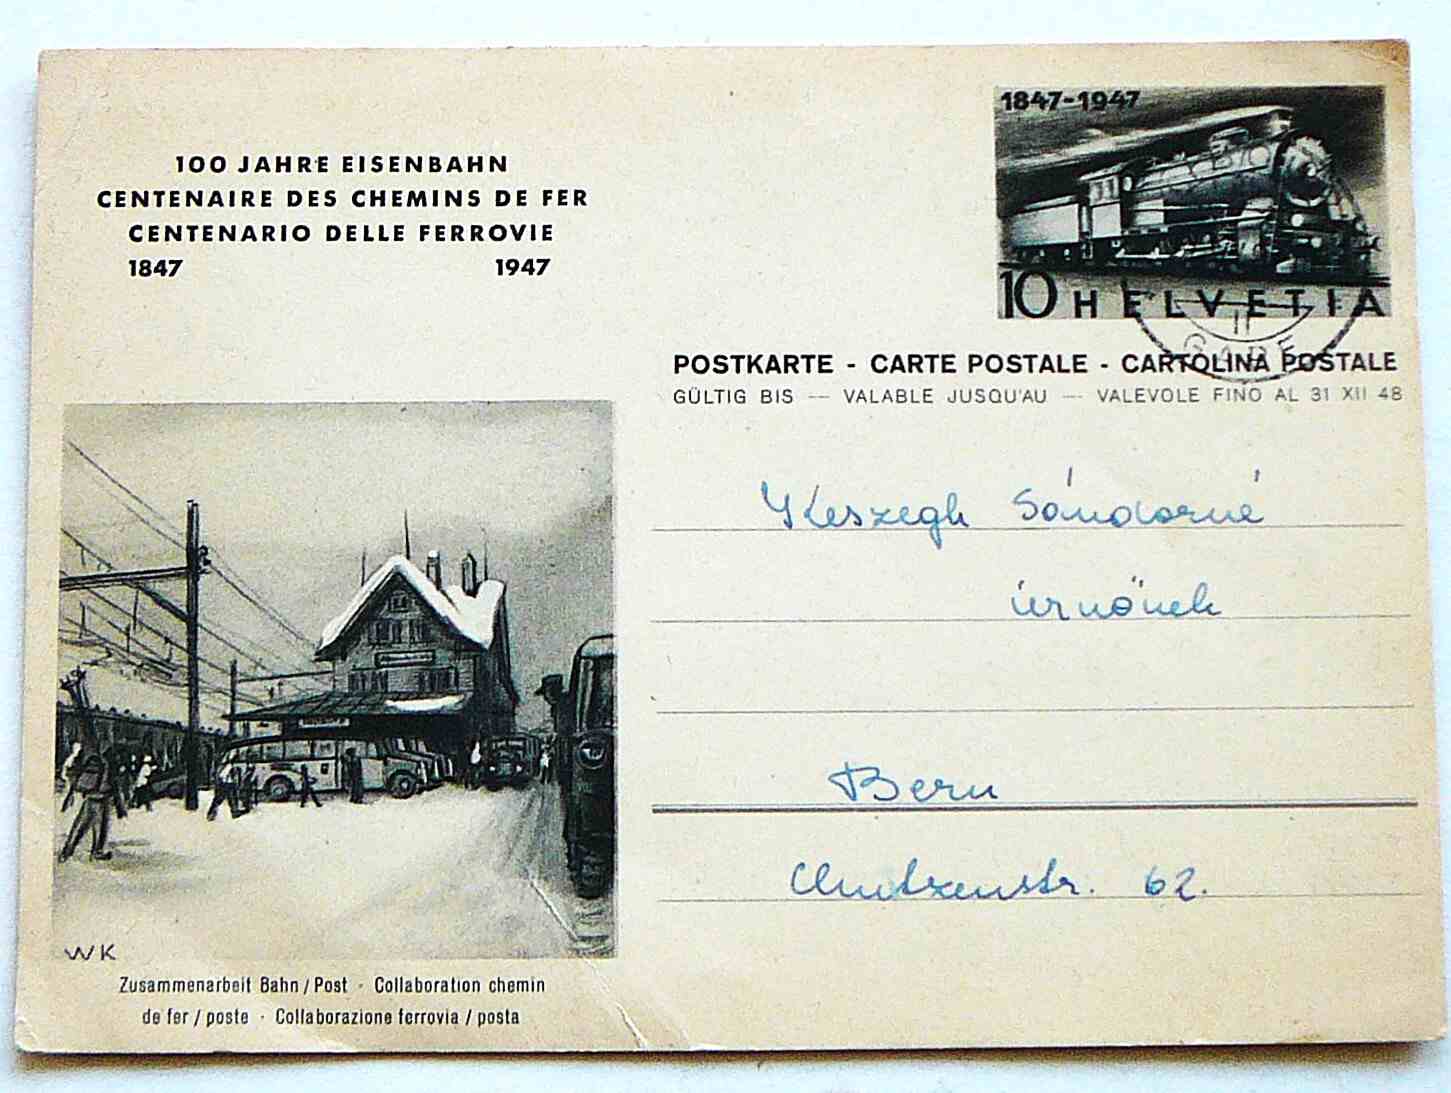 100 JAHRE EISENBAHN
CENTENAIRE DES CHEMINS DE FER
CENTENARIO DELLE FERROVIE
1847 1947
1847-1947
10 HELVETIA
II
GARE
POSTKARTE - CARTE POSTALE - CARTOLINA POSTALE
GÜLTIG BIS — VALABLE JUSQU'AU — VALEVOLE FINO AL 31 XII 48
Keszegh Sándorné
úrnőnek
Bern
62.
WK
Zusammenarbeit Bahn / Post · Collaboration chemin
de fer / poste · Collaborazione ferrovia / posta